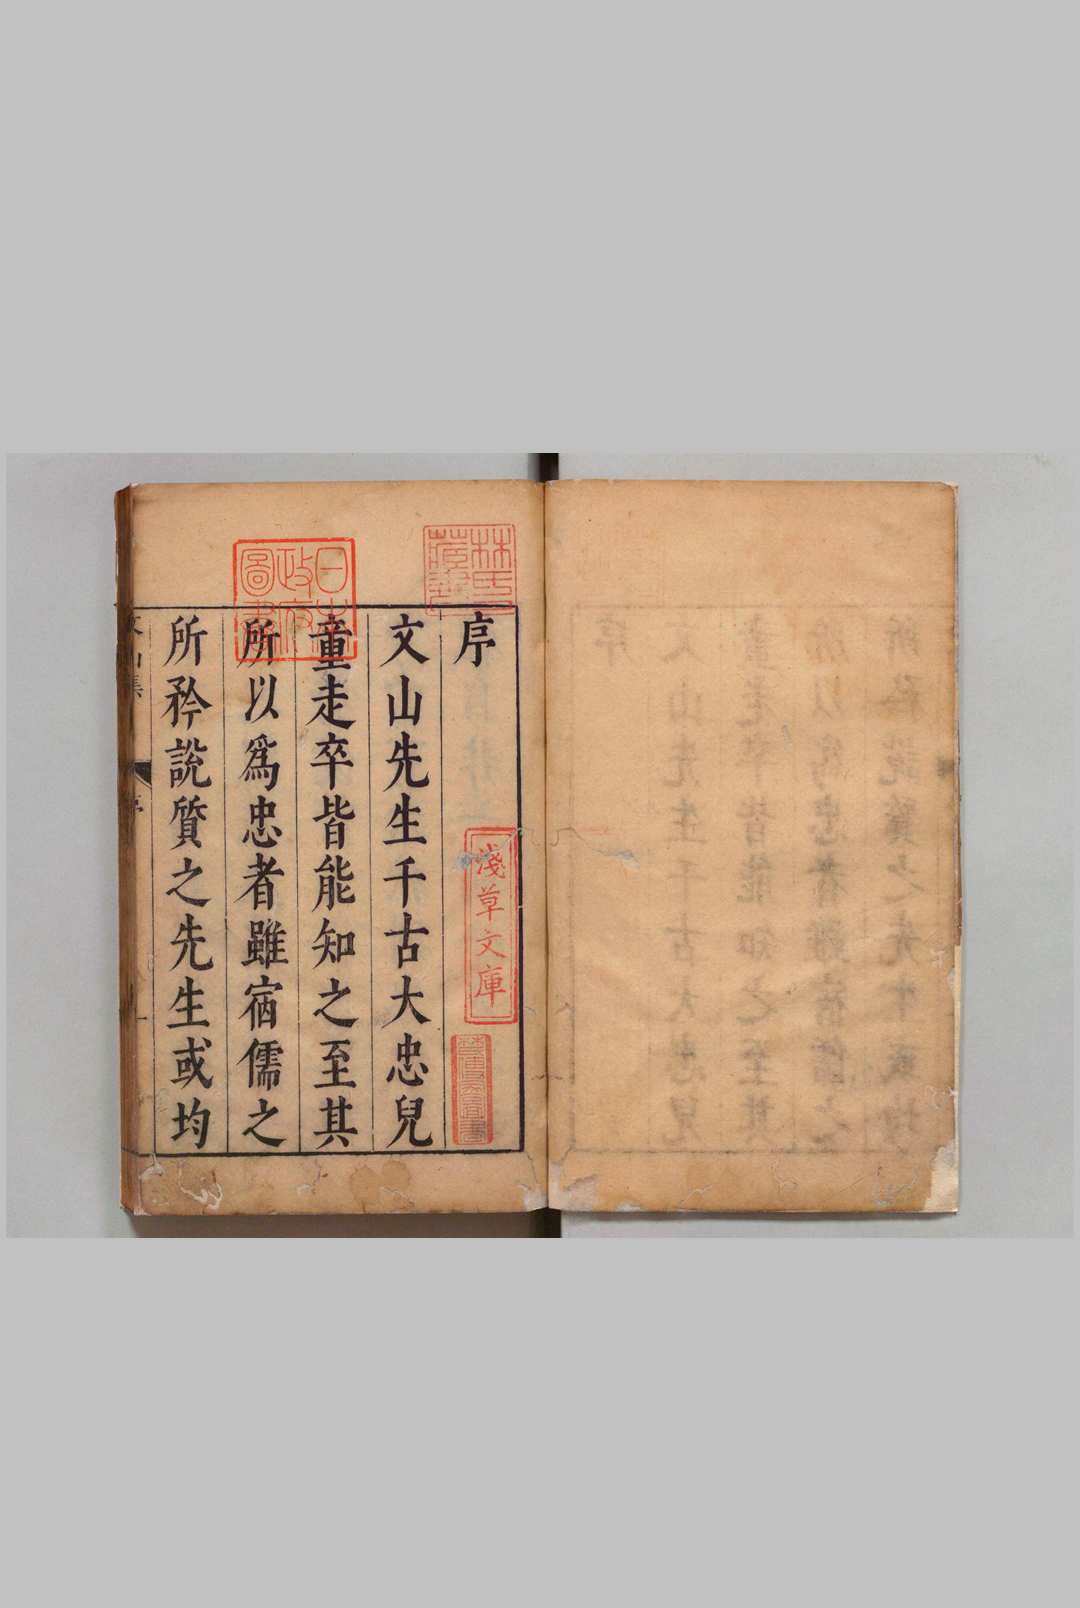 序
文山先生千古大忠兒
童走卒皆能知之至其
所以爲忠者雖宿儒之
所矜說質之先生或均
林氏藏書
日本政府圖書
淺草文庫